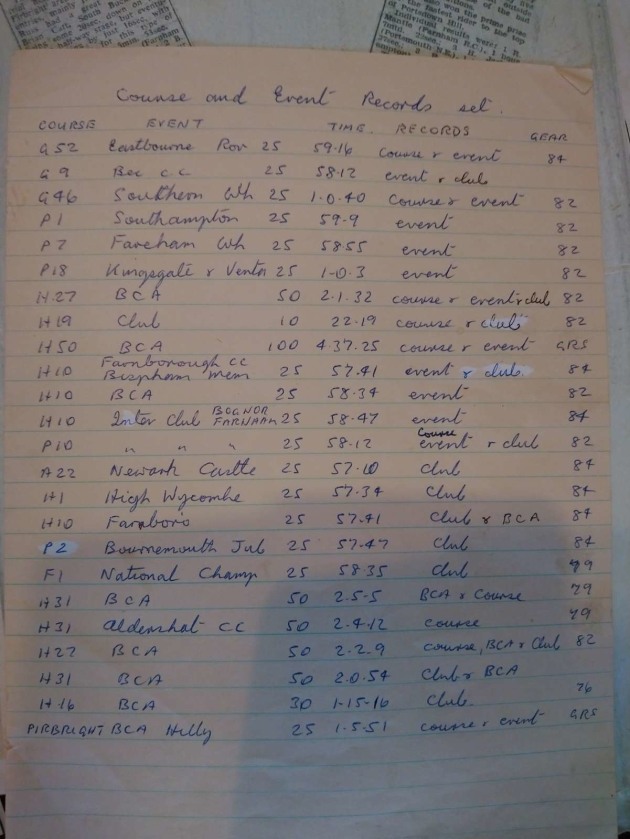 Course and Event Records set.
COURSE EVENT TIME. RECORDS GEAR
G52 Eastbourne Rov 25 59.16 course & event 84
G9 Bec CC 25 58.12 event & club
G46 Southern Wh 25 1-0.40 course & event 82
P1 Southampton 25 59-9 event 82
P7 Fareham Wh 25 58.55 event 82
P18 Kingsgate & Ventor 25 1-0.3 event 82
H.27 BCA 50 2.1.32 course & event & club 82
H19 Club 10 22.19 course & club 82
H50 BCA 100 4.37.25 course & event GRS
Farnborough CC
H10 Bispham Mem 25 57.41 event & club. 84
H10 BCA 25 58.34 event 82
H10 Inter Club BOGNOR FARNHAM 25 58.47 event 84
P10 " " " 25 58.12 Course event & club 82
A22 Newark Castle 25 57.10 Club 84
H1 High Wycombe 25 57.34 Club 84
H10 Farnboro 25 57.41 Club & BCA 84
P2 Bournemouth Jub 25 57.47 Club 84
F1 National Champ 25 58.35 Club 79
H31 BCA 50 2.5-5 BCA & Course 79
H31 Aldershot CC 50 2.4.12 course 79
H27 BCA 50 2-2.9 course, BCA & Club 82
H31 BCA 50 2.0.54 Club & BCA
H.16 BCA 30 1-15-16 Club. 76
PIRBRIGHT BCA Hilly 25 1.5.51 course & event GRS